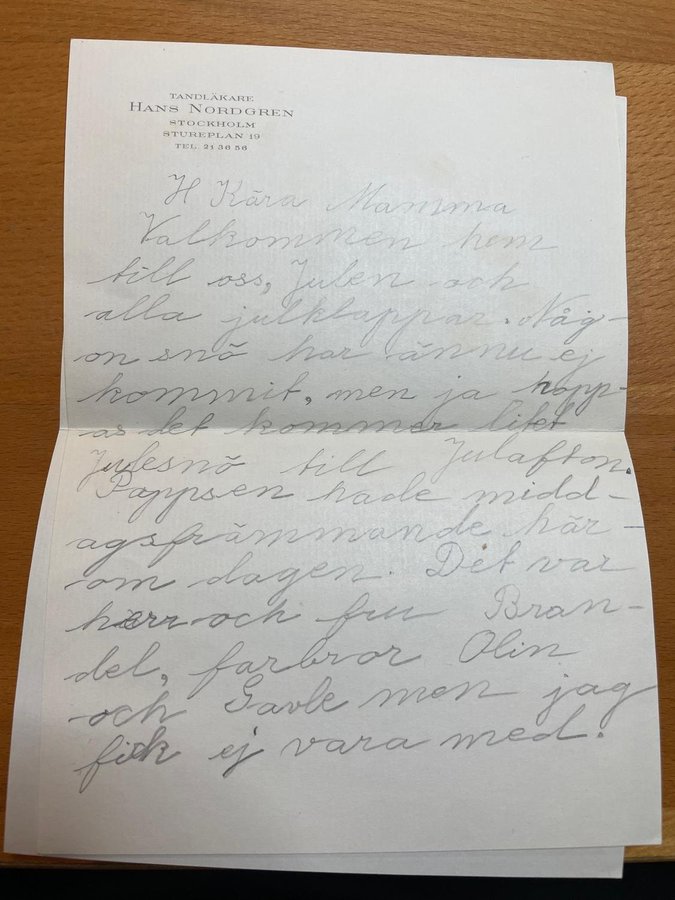 TANDLÄKARE
HANS NORDGREN
STOCKHOLM
STUREPLAN 19
TEL. 21 36 56
H Kära Mamma
Valkommen hem
till oss, Julen och
alla julklappar. Någ-
on snö har ännu ej
kommit, men ja hopp-
as det kommer litet
Julesnö till Julafton.
Pappsen hade midd-
agsfrämmande här-
om dagen. Det var
herr och fru Bran-
del, farbror Olin
och men jag
fick ej vara med.